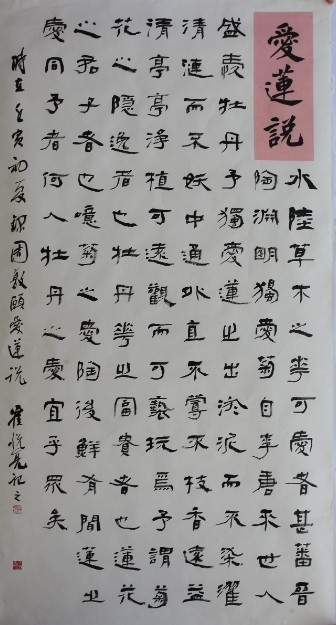 愛蓮說
水陸草木之華可愛者甚蕃晉
陶淵明獨愛菊自李唐來世人
盛愛牡丹予獨愛蓮之出淤泥而不染濯
清漣而不妖中通外直不蔓不枝香遠益
清亭亭淨植可遠觀而可褻玩焉予謂菊
花之隱逸者也牡丹華之富貴者也蓮花
之君子者也噫菊之愛陶後鮮有聞蓮之
愛同予者何人牡丹之愛宜乎眾矣
時在壬寅初夏錄周敦頤愛蓮說 崔悅亮記之